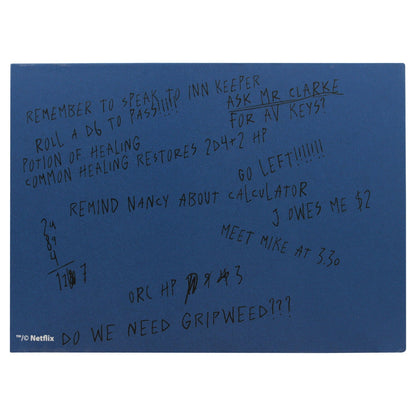 REMEMBER TO SPEAK TO INN KEEPER
ROLL A D6 TO PASS!!!!!
ASK MR CLARKE
FOR AV KEYS?
POTION OF HEALING
COMMON HEALING RESTORES 2D4+2 HP
GO LEFT!!!!!!!
REMIND NANCY ABOUT CALCULATOR
J OWES ME $2
MEET MIKE AT 3.30
24
89
4
117
ORC HP 3
DO WE NEED GRIPWEED???
™/© Netflix